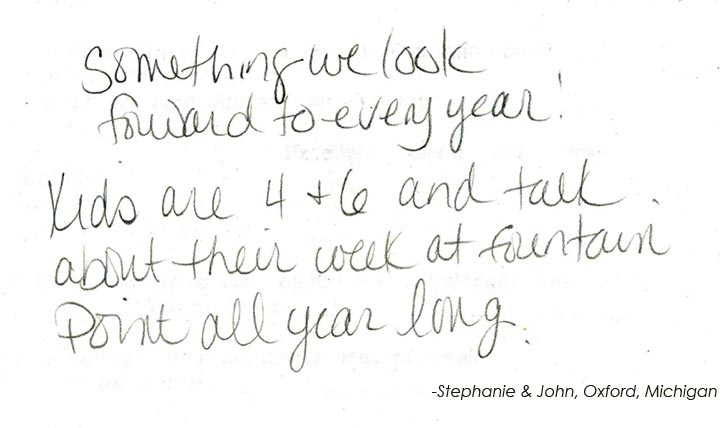 Something we look
forward to every year!
Kids are 4 + 6 and talk
about their week at fountain
Point all year long.
-Stephanie & John, Oxford, Michigan